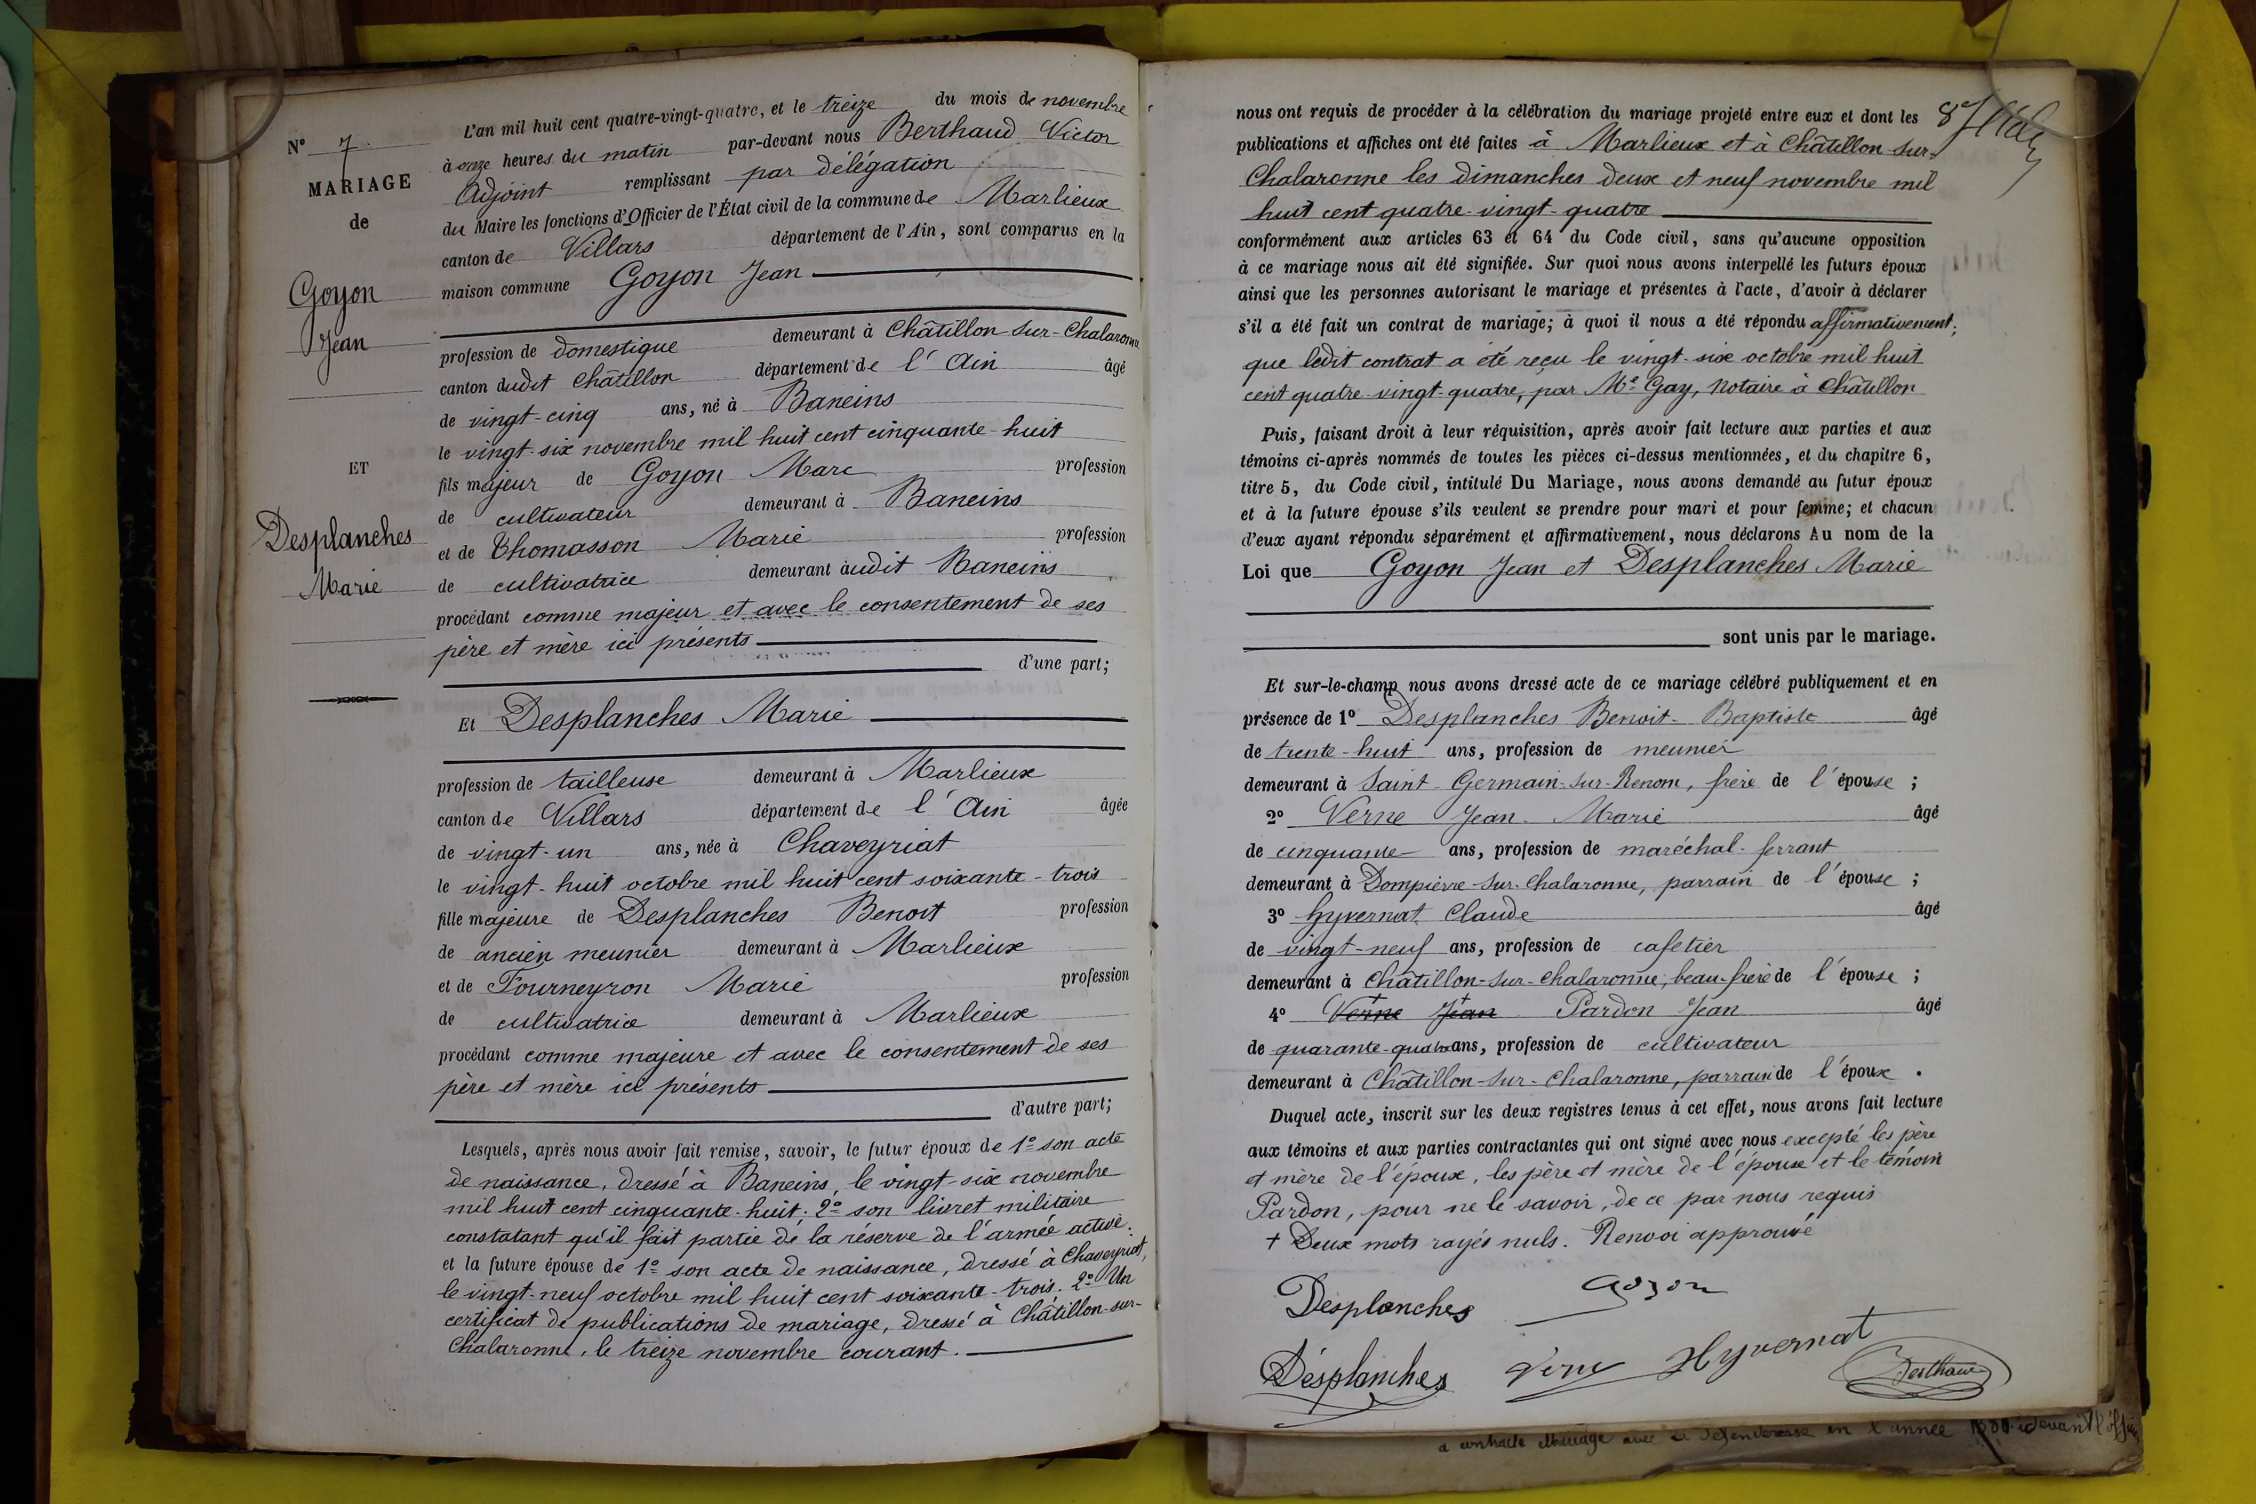 N° 7
MARIAGE
de
Goyon
Jean
ET
Desplanches
Marie
L'an mil huit cent quatre-vingt-quatre, et le treize du mois de novembre
à onze heures du matin par-devant nous Berthaud Victor
Adjoint remplissant par délégation
du Maire les fonctions d'Officier de l'État civil de la commune de Marlieux
canton de Villars département de l'Ain, sont comparus en la
maison commune Goyon Jean
profession de domestique demeurant à Châtillon-sur-Chalaronne
canton dudit Châtillon département de l'Ain âgé
de vingt-cinq ans, né à Baneins
le vingt-six novembre mil huit cent cinquante-huit
fils majeur de Goyon Marc profession
de cultivateur demeurant à Baneins
et de Thomasson Marie profession
de cultivatrice demeurant audit Baneins
procédant comme majeur et avec le consentement de ses
père et mère ici présents
d'une part;
Et Desplanches Marie
profession de tailleuse demeurant à Marlieux
canton de Villars département de l'Ain âgée
de vingt-un ans, née à Chaveyriat
le vingt-huit octobre mil huit cent soixante-trois
fille majeure de Desplanches Benoit profession
de ancien meunier demeurant à Marlieux
et de Fourneyron Marie profession
de cultivatrice demeurant à Marlieux
procédant comme majeure et avec le consentement de ses
père et mère ici présents
d'autre part;
Lesquels, après nous avoir fait remise, savoir, le futur époux de 1° son acte
de naissance, dressé à Baneins, le vingt-six novembre
mil huit cent cinquante-huit; 2° son livret militaire
constatant qu'il fait partie de la réserve de l'armée active.
et la future épouse de 1° son acte de naissance, dressé à Chaveyriat,
le vingt-neuf octobre mil huit cent soixante-trois. 2° Un
certificat de publications de mariage, dressé à Châtillon-sur-
Chalaronne, le treize novembre courant.
nous ont requis de procéder à la célébration du mariage projeté entre eux et dont les
publications et affiches ont été faites à Marlieux et à Châtillon-sur-
Chalaronne les dimanches deux et neuf novembre mil
huit cent quatre-vingt-quatre
conformément aux articles 63 et 64 du Code civil, sans qu'aucune opposition
à ce mariage nous ait été signifiée. Sur quoi nous avons interpellé les futurs époux
ainsi que les personnes autorisant le mariage et présentes à l'acte, d'avoir à déclarer
s'il a été fait un contrat de mariage; à quoi il nous a été répondu affirmativement;
que ledit contrat a été reçu le vingt-six octobre mil huit
cent quatre-vingt-quatre, par Me Gay, Notaire à Châtillon
Puis, faisant droit à leur réquisition, après avoir fait lecture aux parties et aux
témoins ci-après nommés de toutes les pièces ci-dessus mentionnées, et du chapitre 6,
titre 5, du Code civil, intitulé Du Mariage, nous avons demandé au futur époux
et à la future épouse s'ils veulent se prendre pour mari et pour femme; et chacun
d'eux ayant répondu séparément et affirmativement, nous déclarons Au nom de la
Loi que Goyon Jean et Desplanches Marie
sont unis par le mariage.
Et sur-le-champ nous avons dressé acte de ce mariage célébré publiquement et en
présence de 1° Desplanches Benoit-Baptiste âgé
de trente-huit ans, profession de meunier
demeurant à Saint-Germain-sur-Renom, frère de l'épouse;
2° Verne Jean-Marie âgé
de cinquante ans, profession de maréchal-ferrant
demeurant à Dompierre-sur-Chalaronne, parrain de l'épouse;
3° Hyvernat Claude âgé
de vingt-neuf ans, profession de cafetier
demeurant à Châtillon-sur-Chalaronne, beau-frère de l'épouse;
4° Verne Jean Pardon Jean âgé
de quarante-quatre ans, profession de cultivateur
demeurant à Châtillon-sur-Chalaronne, parrain de l'époux.
Duquel acte, inscrit sur les deux registres tenus à cet effet, nous avons fait lecture
aux témoins et aux parties contractantes qui ont signé avec nous excepté les père
et mère de l'époux, les père et mère de l'épouse et le témoin
Pardon, pour ne le savoir, de ce par nous requis
+ Deux mots rayés nuls. Renvoi approuvé
Desplanches Goyon
Desplanches Verne Hyvernat Berthaud
a contracté mariage avec en l'année devant